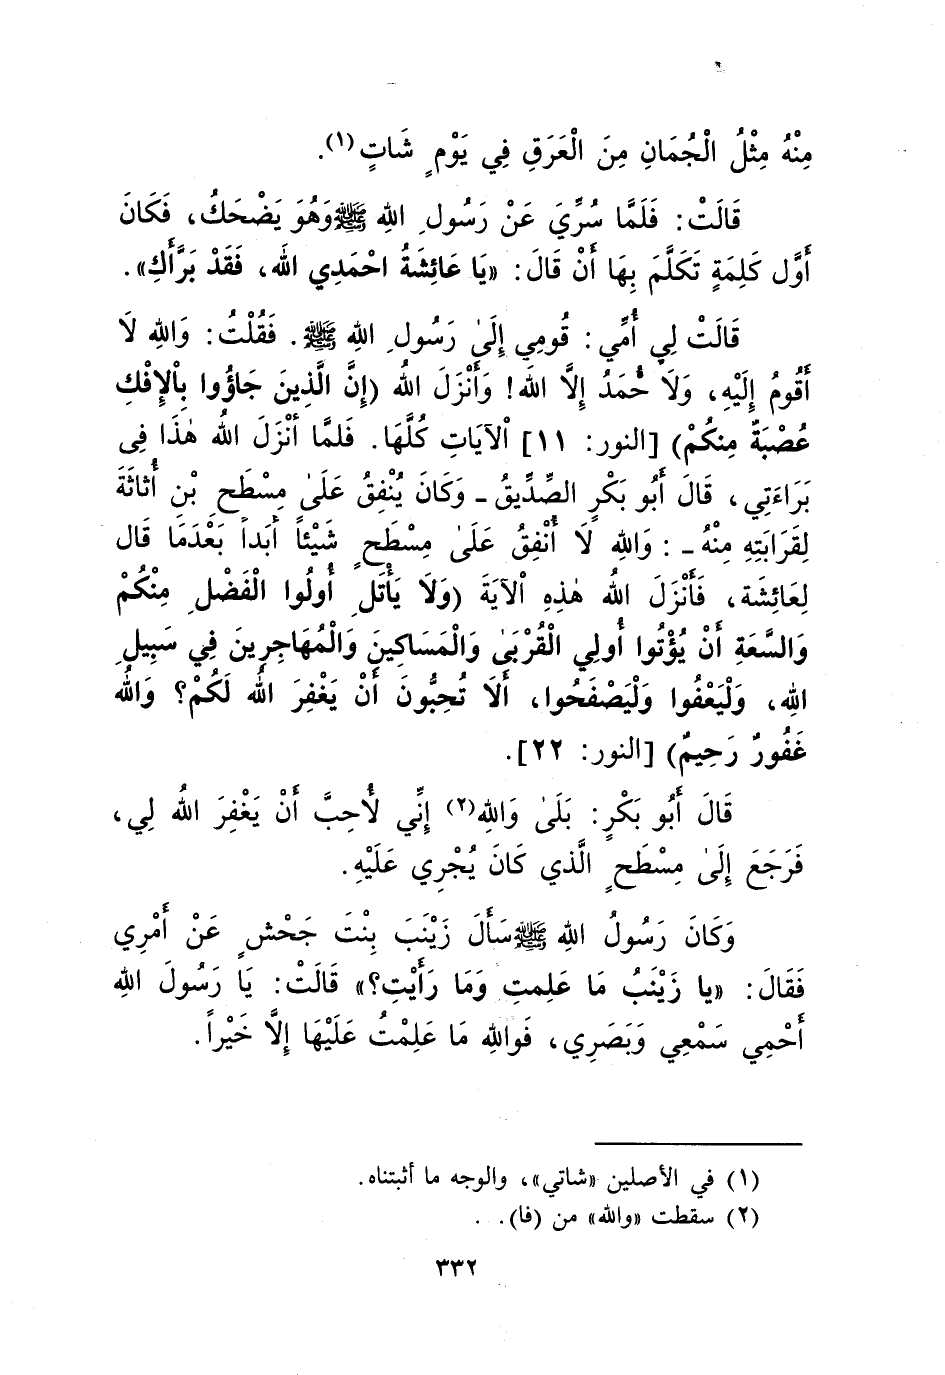 مِنْهُ مِثْلُ الْجُمَانِ مِنَ الْعَرَقِ فِي يَوْمٍ شَاتٍ(١).
قَالَتْ: فَلَمَّا سُرِّيَ عَنْ رَسُولِ اللهِ ﷺ وَهُوَ يَضْحَكُ، فَكَانَ
أَوَّل كَلِمَةٍ تَكَلَّمَ بِهَا أَنْ قَالَ: «يَا عَائِشَةُ احْمَدِي الله، فَقَدْ بَرَّأَكِ».
قَالَتْ لِي أُمِّي: قُومِي إِلَىٰ رَسُولِ اللهِ ﷺ. فَقُلْتُ: وَاللهِ لَا
أَقُومُ إِلَيْهِ، وَلَا حُمَدُ إِلَّا الله! وَأَنْزَلَ اللهُ (إِنَّ الَّذِينَ جَاؤُوا بِالْإِفْكِ
عُصْبَةٌ مِنكُمْ) [النور: ١١] اْلآيَاتِ كُلَّهَا. فَلمَّا أنْزَلَ اللهُ هٰذَا فِى
بَرَاءَتِي، قَالَ أَبُو بَكْرٍ الصِّدِّيقُ ـ وَكَانَ يُنْفِقُ عَلَىٰ مِسْطَحِ بْنِ أُثاثَةَ
لِقَرَابَتِهِ مِنْهُ ـ: وَاللهِ لَا أُنْفِقُ عَلَىٰ مِسْطَحٍ شَيْئاً أَبَداً بَعْدَمَا قَال
لِعَائِشَة، فَأَنْزَلَ اللهُ هٰذِهِ اْلآيَةَ (وَلَا يَأْتَلِ أُولُوا الْفَضْلِ مِنْكُمْ
وَالسَّعَةِ أَنْ يُؤْتُوا أُولِي الْقُرْبَىٰ وَالْمَسَاكِينَ وَالْمُهَاجِرِينَ فِي سَبِيلِ
اللهِ، وَلْيَعْفُوا وَلْيَصْفَحُوا، أَلَا تُحِبُّونَ أَنْ يَغْفِرَ اللهُ لَكُمْ؟ وَاللهُ
غَفُورٌ رَحِيمٌ) [النور: ٢٢].
قَالَ أَبُو بَكْرٍ: بَلَىٰ وَاللهِ(٢) إِنِّي لُأَحِبَّ أَنْ يَغْفِرَ اللهُ لِي،
فَرَجَعَ إِلَىٰ مِسْطَحٍ الَّذي كَانَ يُجْرِي عَلَيْهِ.
وَكَانَ رَسُولُ اللهِ ﷺ سَأَلَ زَيْنَبَ بِنْتَ جَحْشٍ عَنْ أَمْرِي
فَقَالَ: «يا زَيْنَبُ مَا عَلِمتِ وَمَا رَأَيْتِ؟» قَالَتْ: يَا رَسُولَ اللهِ
أَحْمِي سَمْعِي وَبَصَرِي، فَواللهِ مَا عَلِمْتُ عَلَيْهَا إِلَّا خَيْراً.
(١) في الأصلين «شاتي»، والوجه ما أثبتناه.
(٢) سقطت «والله» من (فا).
٣٣٢